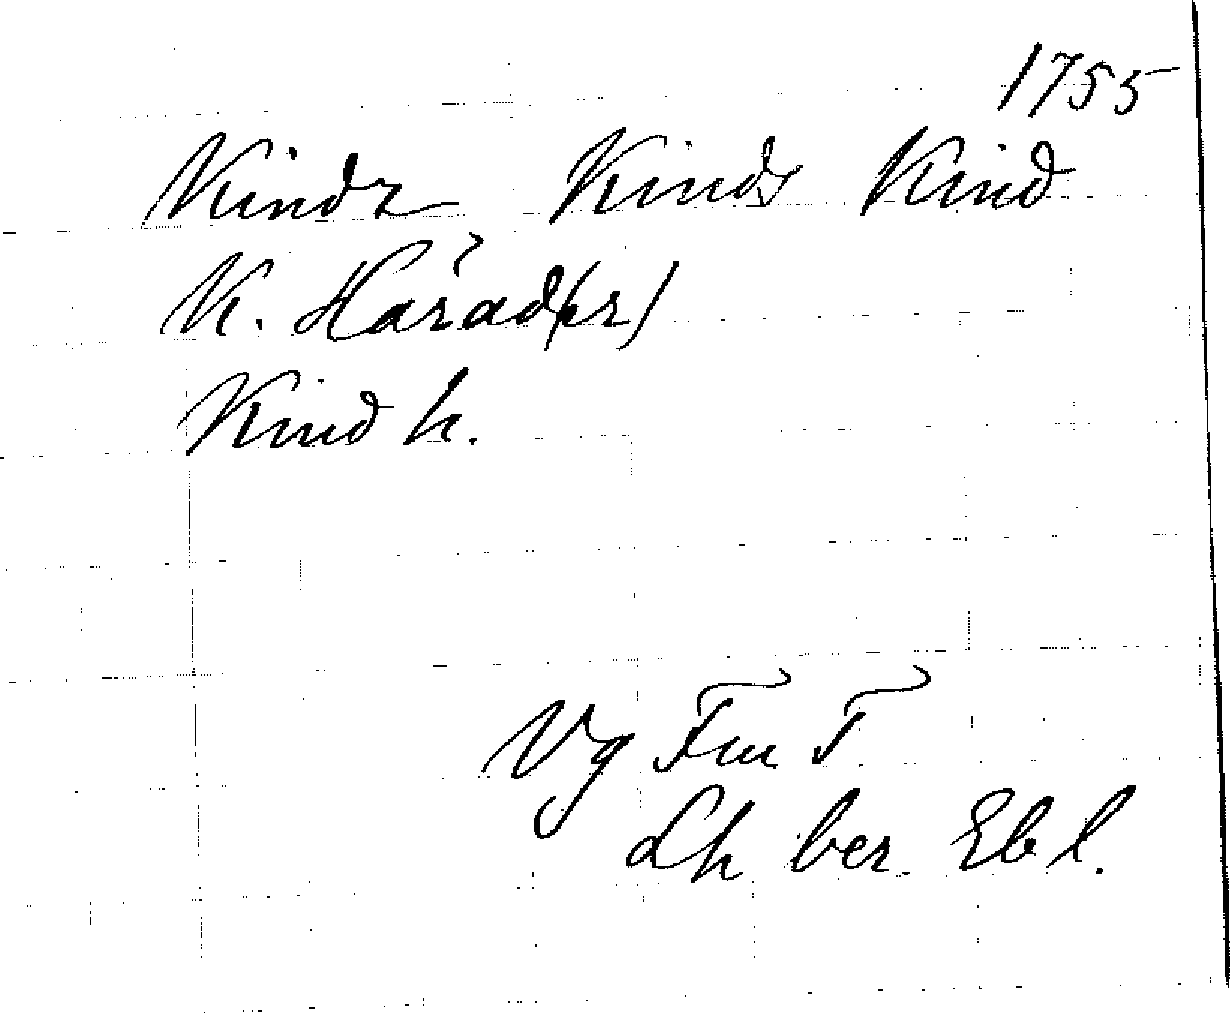 1755
Kindz Kinds Kind
K. Härad(er)
Kind h.
Vg Fru T
Lh ber. Ebl.